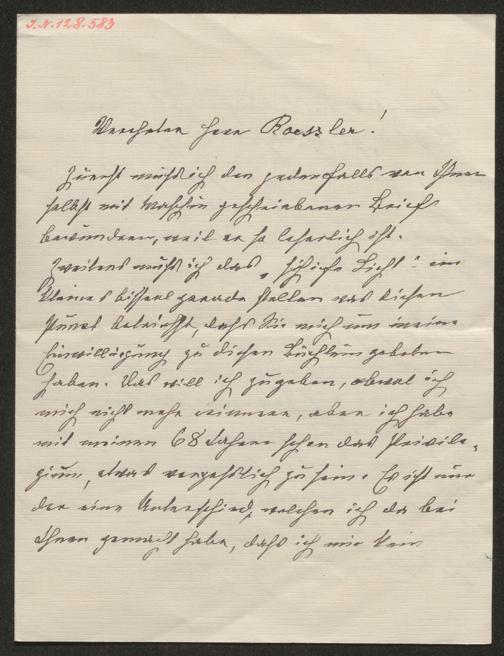 I.N.128.583
Verehrter Herr Roessler!
Zuerst muß ich den jedenfalls von Ihnen
selbst mit Maschin geschriebenen Brief
bewundern, weil er so leserlich ist.
Zweitens muß ich das „ Licht" ein
kleines bisserl gerade stellen was diesen
Punct betrifft, daß Sie mich um meine
Einwilligung zu diesen Büchlein gebeten
haben. Das will ich zugeben, obwol ich
mich nicht mehr erinnere, aber ich habe
mit meinen 68 Jahren schon das Privile-
gium, etwas vergeßlich zu sein. Es ist nur
der eine Unterschied, welchen ich da bei
Ihnen gemacht habe, daß ich mir kein